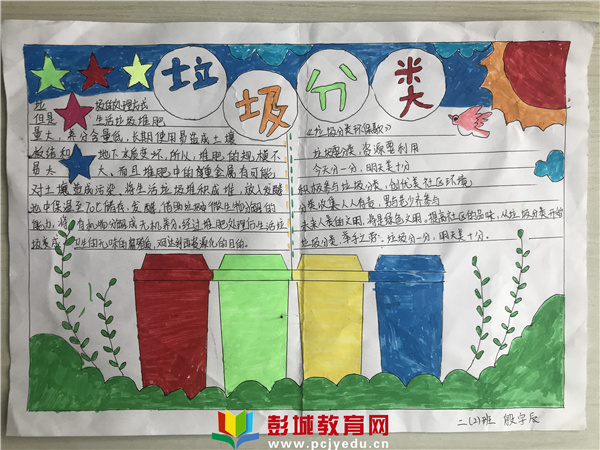 垃圾分类
垃圾处理方式
但是 生活垃圾堆肥
量大，养分含量低，长期使用易造成土壤
板结和 地下水质变坏，所以，堆肥的规模不
易太 大，而且堆肥中的重金属有可能
对土壤造成污染，将生活垃圾堆积成堆，放入发酵
地中保温至70℃储存，发酵，借助垃圾中微生物分解的
能力，将有机物分解成无机养分。经过堆肥处理后生活垃
圾变成 卫生的无味的腐殖质，
《垃圾分类环保歌》
垃圾要分类，资源要利用
今天分一分，明天美十分
积极参与垃圾分类，创优美社区环境，
分类收集人人有责，
垃圾分类，举手之劳，垃圾分一分，明天美十分。
二(2)班 殷宇辰
彭城教育网
www.pcjyedu.cn